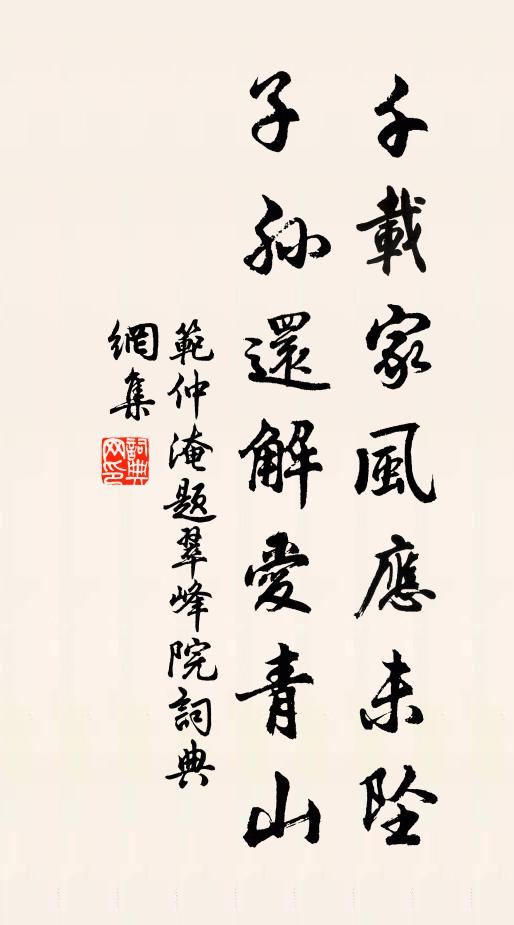 千載家風應未墜
子孫還解愛青山
範仲淹題翠峰院詞典
網集
詞典網印